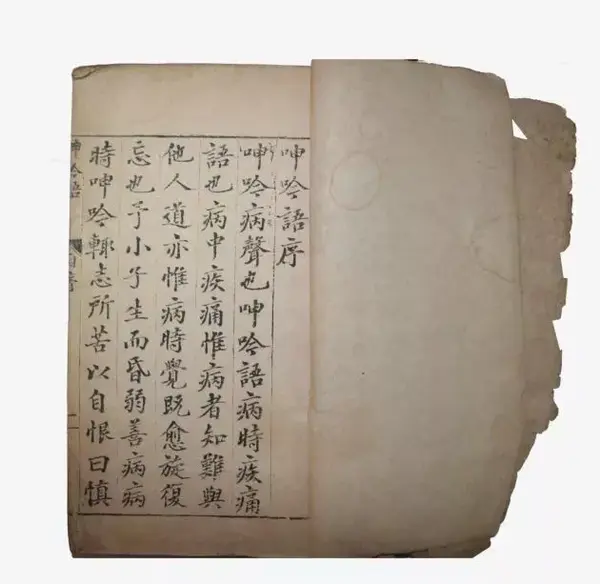 呻吟語序
呻吟病聲也呻吟語病時疾痛
語也病中疾痛惟病者知難與
他人道亦惟病時覺既愈旋復
忘也予小子生而昏弱善病病
時呻吟輒志所苦以自恨曰慎
呻吟語
自序
一